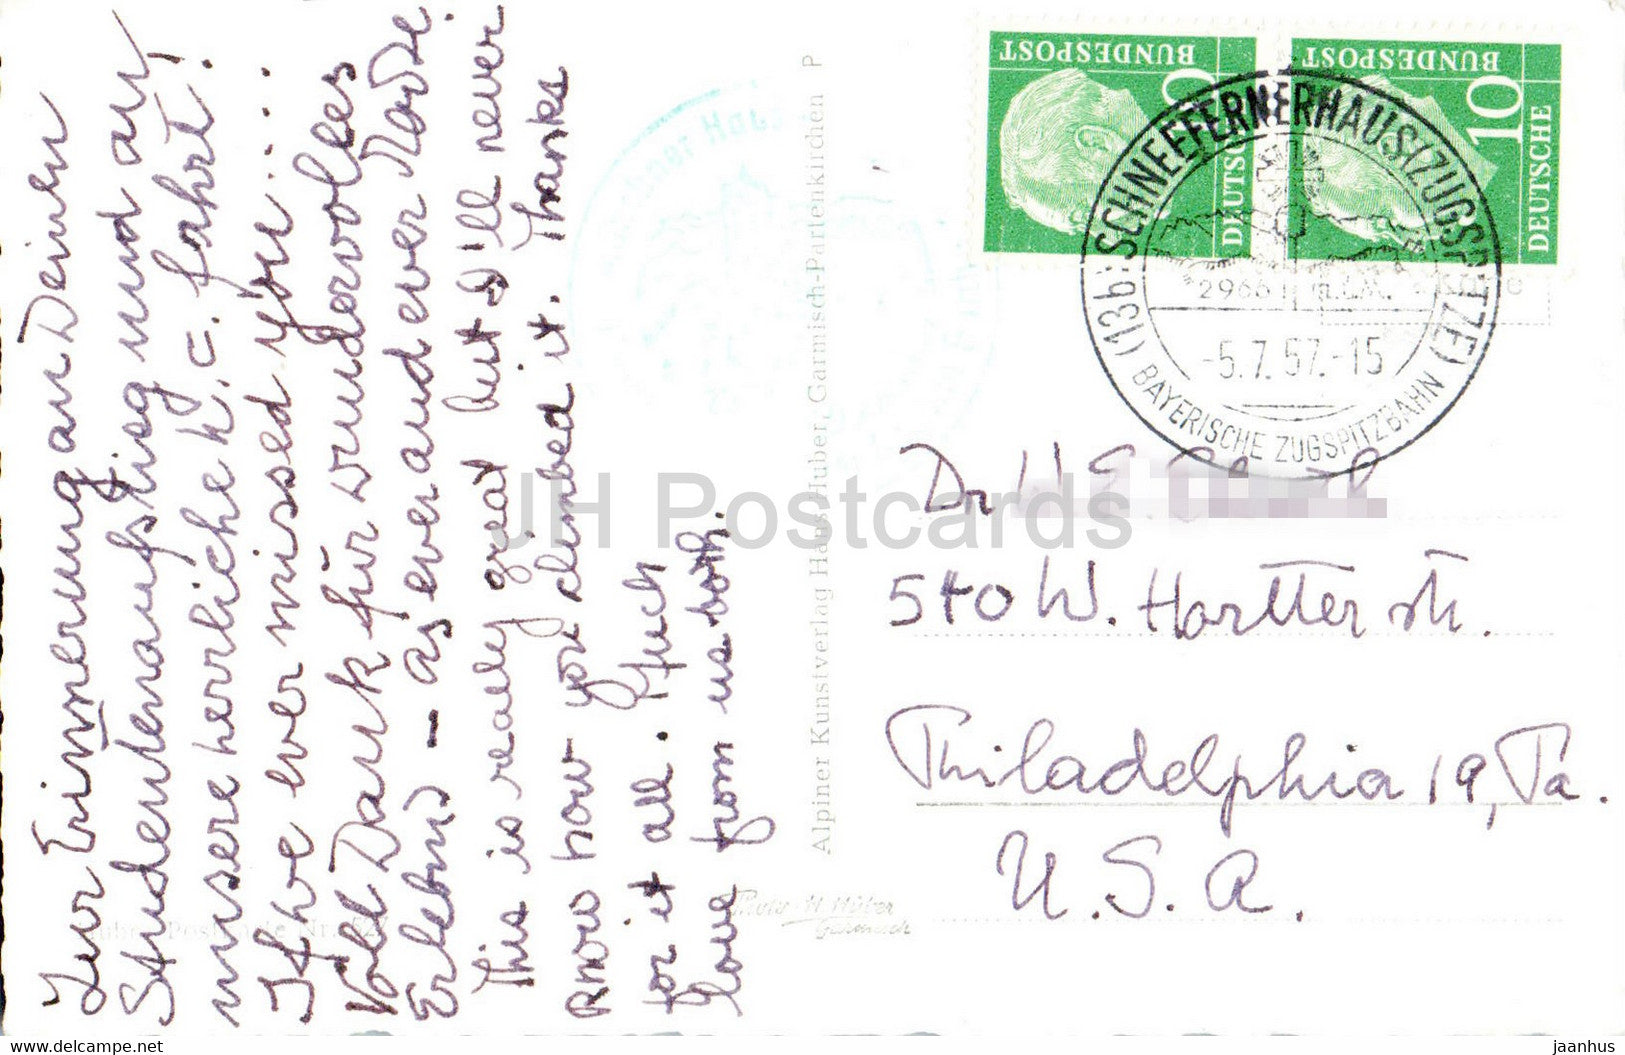 Zur Erinnerung an Deinen
Studentenaufstieg und an
unsere herrliche
fahrt!
I have ever missed you....
Voll Dank für wundervolles
Erlebnis - as ever and ever
This is really great but I'll never
know how you climbed it. Thanks
for it all. Much
love from us both.
Huber Postkarte Nr. 527
Photo H. Huber
Garmisch
Alpiner Kunstverlag Hans Huber, Garmisch-Partenkirchen P
DEUTSCHE
BUNDESPOST
DEUTSCHE
BUNDESPOST
10
(13b) SCHNEEFERNERHAUS (ZUGSPITZE)
2966 m.ü.M.
-5.7.57.-15
BAYERISCHE ZUGSPITZBAHN
Dr
540 W. Hortter Str.
Philadelphia 19, Pa.
U.S.A.
JH Postcards
www.delcampe.net
jaanhus